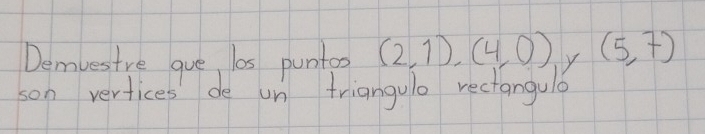 Demuestre que los puntos (2,1), (4,0) y (5,7)
son vertices de un triangulo rectangulo